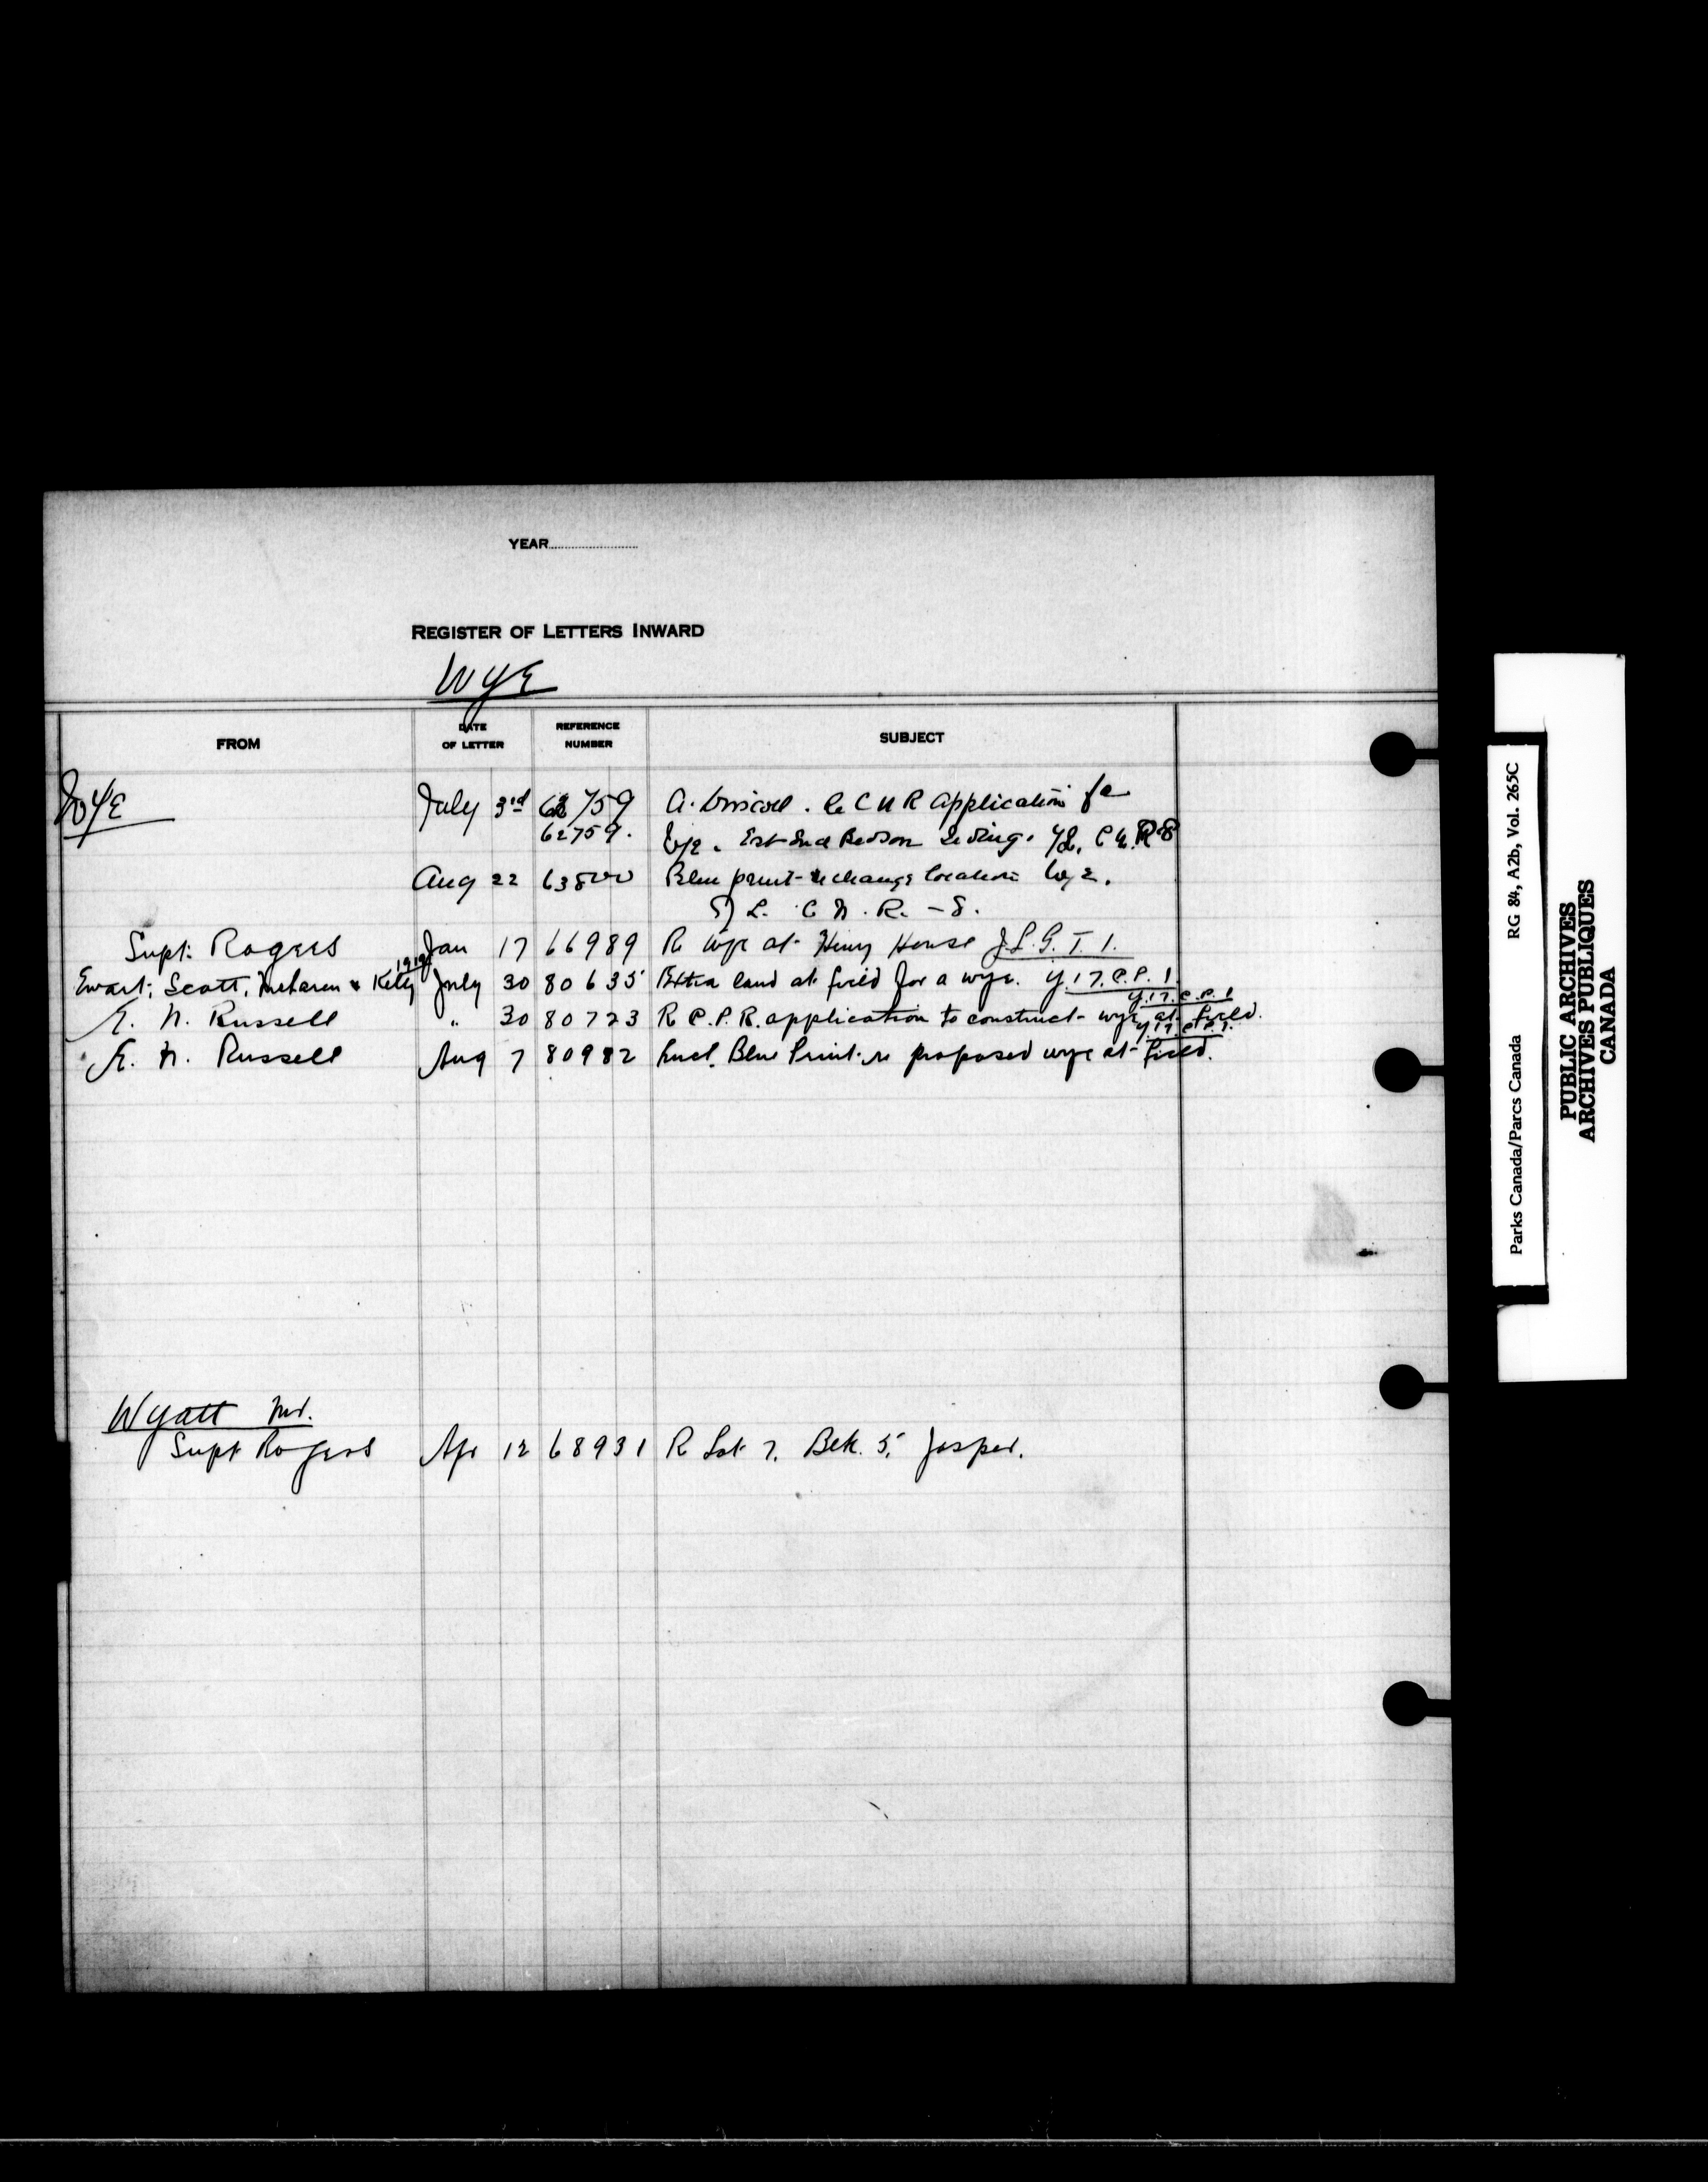 YEAR
REGISTER OF LETTERS INWARD
Wye
FROM DATE OF LETTER REFERENCE NUMBER SUBJECT
Wye July 3rd 62759 A. Driscoll. Re C N R application for
62759. Wye. East End Bedson Siding. C N. R
Aug 22 63800 Blue print re change location Wye.
L. C N. R. - 8.
Supt. Rogers Jan 17 66989 R wye at Henry House J.L.G.T. 1.
1919
Ewart, Scott, McLaren & Kelly July 30 80635 Extra land at field for a wye. Y.17.C.P.1.
Y.17.C.P.1
E. N. Russell " 30 80723 R C.P.R. application to construct wye at field.
Y.17.C.P.1.
E. N. Russell Aug 7 80982 Encl. Blue Print re proposed wye at field.
Wyatt Mr.
Supt Rogers Apr 12 68931 R Lot 7. Blk. 5. Jasper.
Parks Canada/Parcs Canada RG 84, A2b, Vol. 265C
PUBLIC ARCHIVES
ARCHIVES PUBLIQUES
CANADA